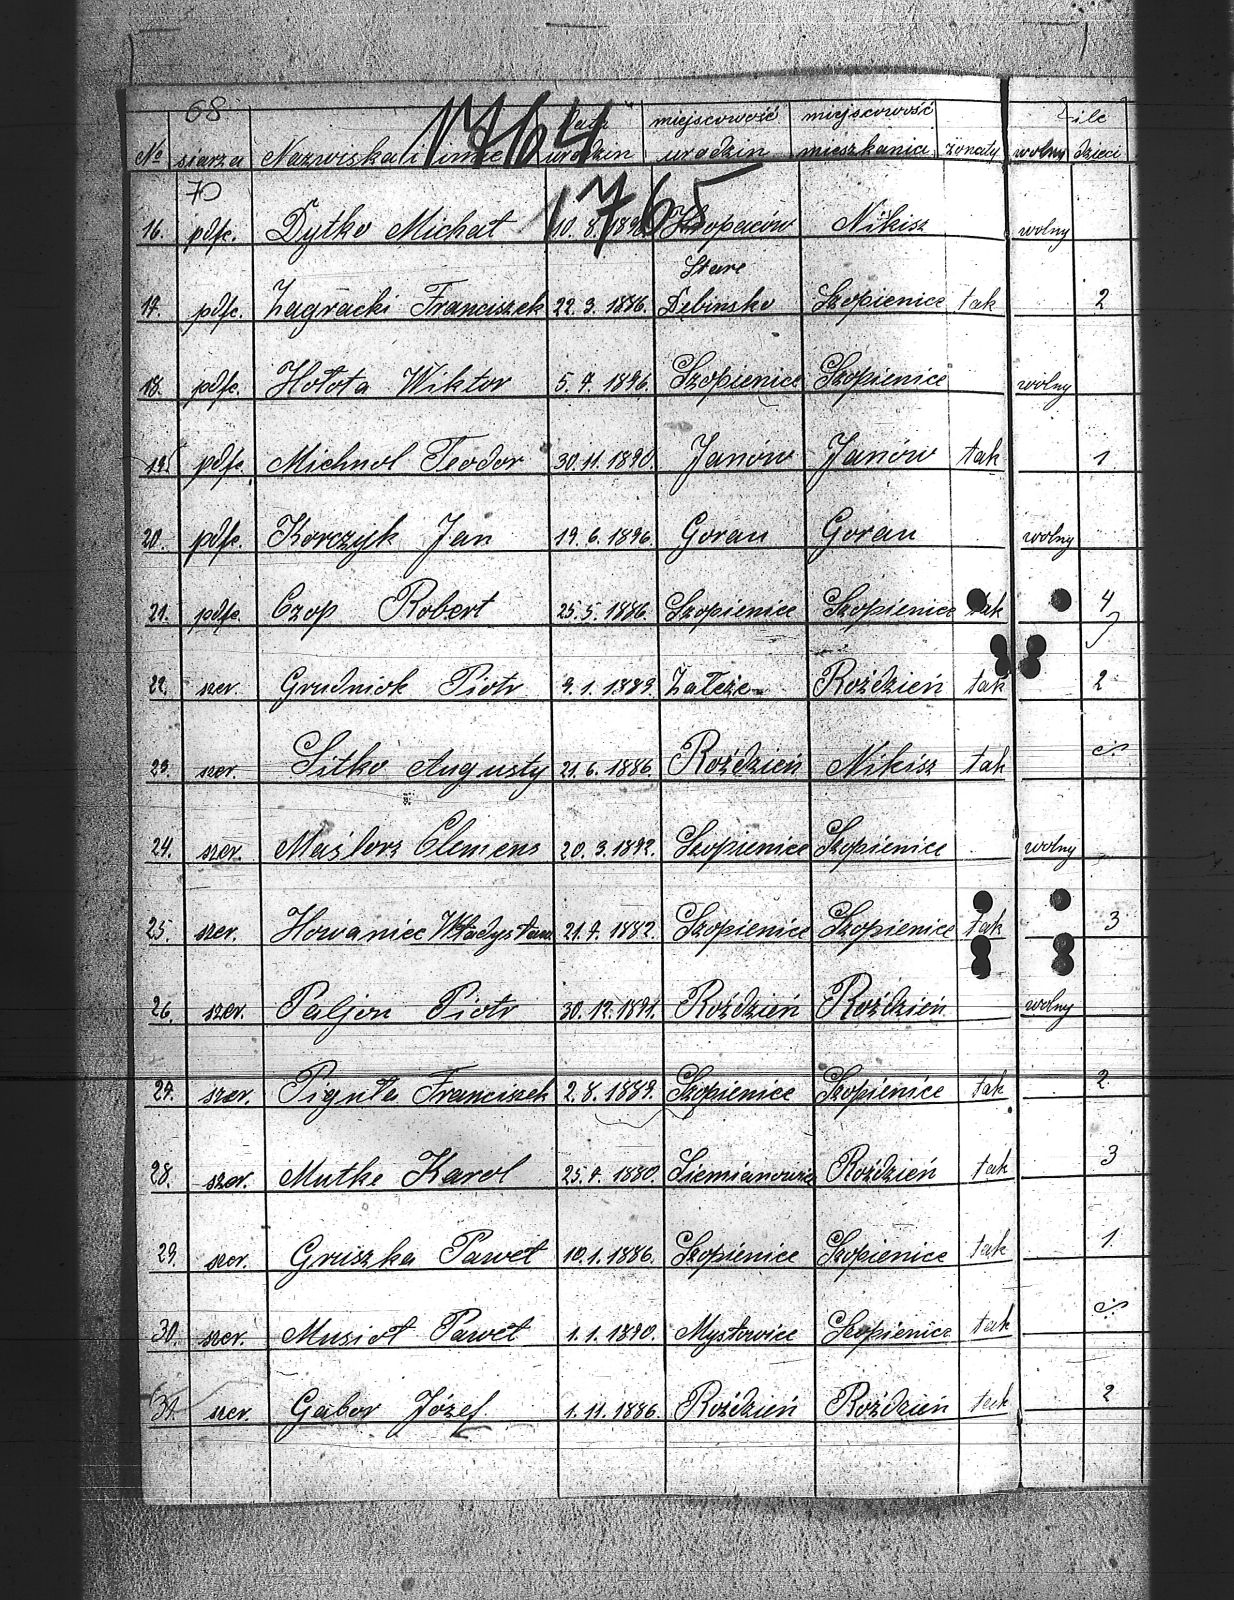 68 1764 data miejscowość miejscowość ile
No siarza Nazwiska i imię urodzin urodzin mieszkania żonaty wolny dzieci
70 1765
16. pdfc. Dytko Michał 10. 8. Nikisz wolny
Stare
17. pdfc. Zagracki Franciszek 22. 3. 1886. Dębinsko Szopienice tak 2
18. pdfc. Hołota Wiktor 5. 7. 1896. Szopienice Szopienice wolny
19. pdfc. Michnol Teodor 30. 11. 1890 Janów Janów tak 1
20. pdfc. Korczyk Jan 19. 6. 1896. Goran Goran wolny
21. pdfc. Czop Robert 25. 5. 1886. Szopienice Szopienice tak 4
22. szer. Grudniok Piotr 9. 1. 1889. Załeże Roździeń tak 2
23. szer. Sitko Augusty 21. 6. 1886. Roździeń Nikisz tak
24. szer. Maislorz Clemens 20. 3. 1892. Szopienice Szopienice wolny
25. szer. Howaniec Władysław 21. 7. 1882. Szopienice Szopienice tak 3
26. szer. Paljon Piotr 30. 12. Roździeń Roździeń wolny
27. szer. Pigulla Franciszek 2. 8. 1889. Szopienice Szopienice tak 2
28. szer. Mutke Karol 25. 7. 1880. Siemianowice Roździeń tak 3
29. szer. Gruszka Paweł 10. 1. 1886. Szopienice Szopienice tak 1.
30. szer. Musioł Paweł 1. 1. 1890. Mysłowice Szopienice tak
31. szer. Gabor Józef 1. 11. 1886. Roździeń Roździeń tak 2